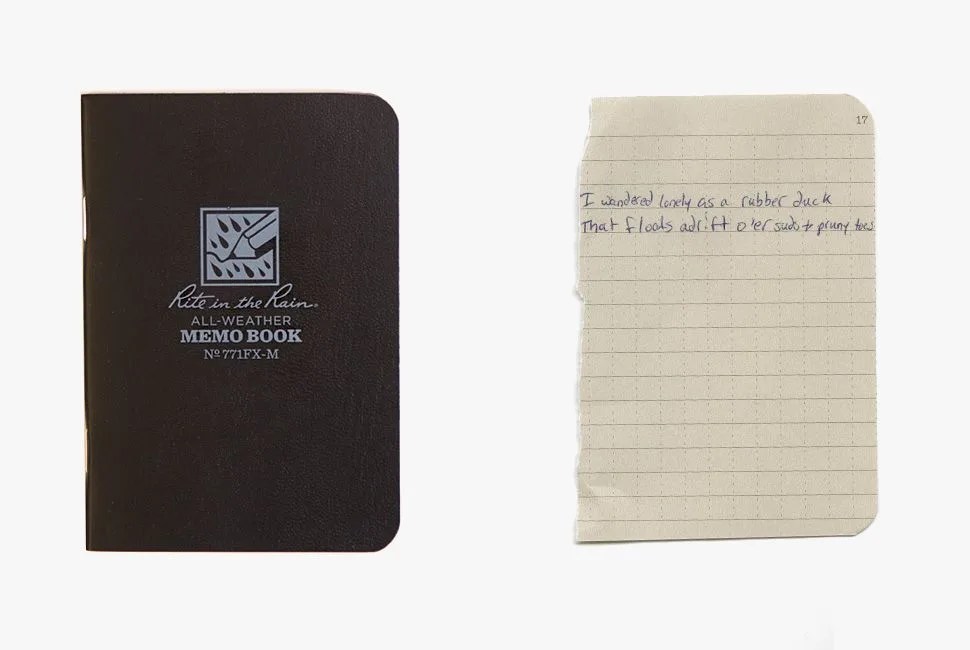 Rite in the Rain®
ALL-WEATHER
MEMO BOOK
Nº 771FX-M
17
I wandered lonely as a rubber duck
That floats adrift o'er suds + pruny toes